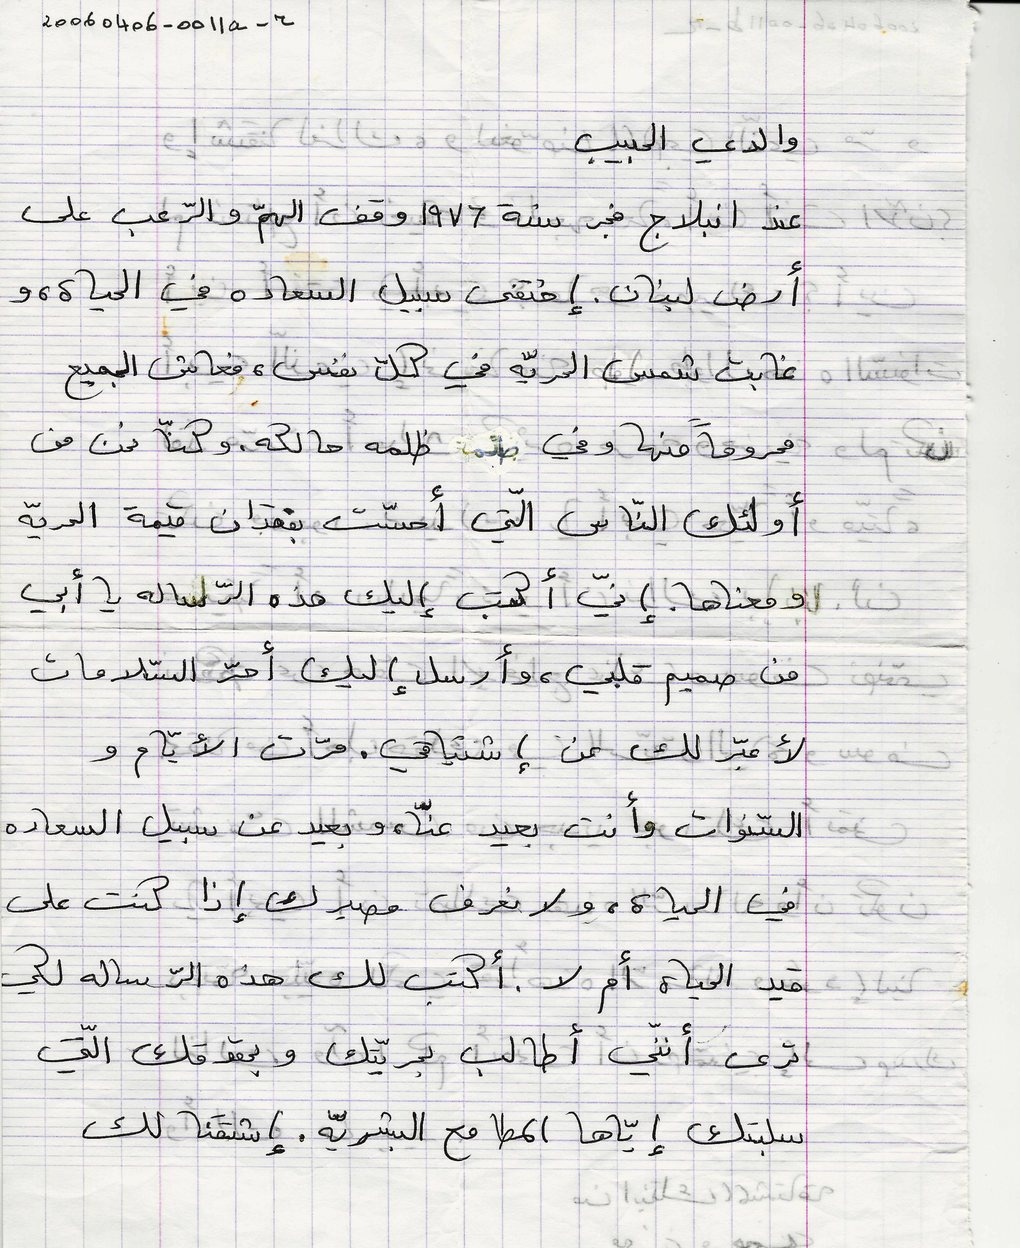 20060406-0011a-r
والدي الحبيب
عند انبلاج فجر سنة ١٩٧٦ وقف الهمّ والرّعب على
أرض لبنان. إختفى سبيل السعاده في الحياة، و
غابت شمس الحريّه في كلّ نفس، فعاش الجميع
محروماً منها وفي ظلمه حالكه. وكنّا نحن من
أولئك النّاس الّتي أحسّت بفقدان قيمة الحريّه
ومعناها. إنيّ أكتب إليك هذه الرّساله يا أبي
من صميم قلبي، وأرسل إليك أحرّ السّلامات
لأعبّر لك عن إشتياقي. مرّت الأيّام و
السّنوات وأنت بعيد عنّا، وبعيد عن سبيل السعاده
في الحياة، ولا نعرف مصيرك إذا كنت على
قيد الحياة أم لا. أكتب لك هذه الرّساله لكي
ترى أنّني أطالب بحريّتك وبحقوقك الّتي
سلبتك إيّاها المطامع البشريّه. إشتقنا لك